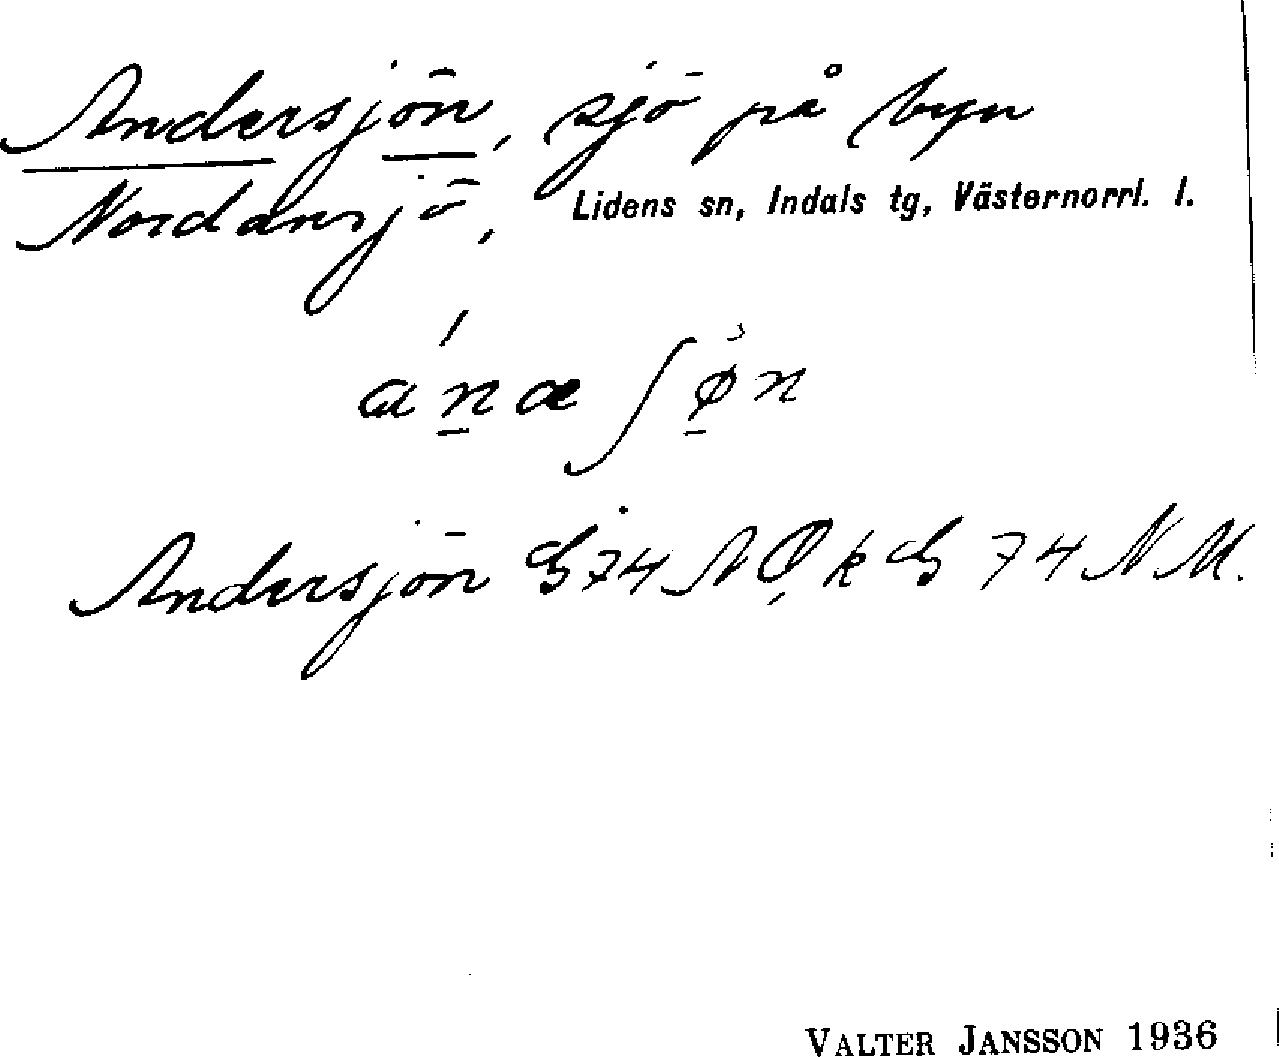 Andersjön, sjö på byn
Nordansjö, Lidens sn, Indals tg, Västernorrl. l.
Andersjön G 74 NÖ k G 74 NM.
VALTER JANSSON 1936